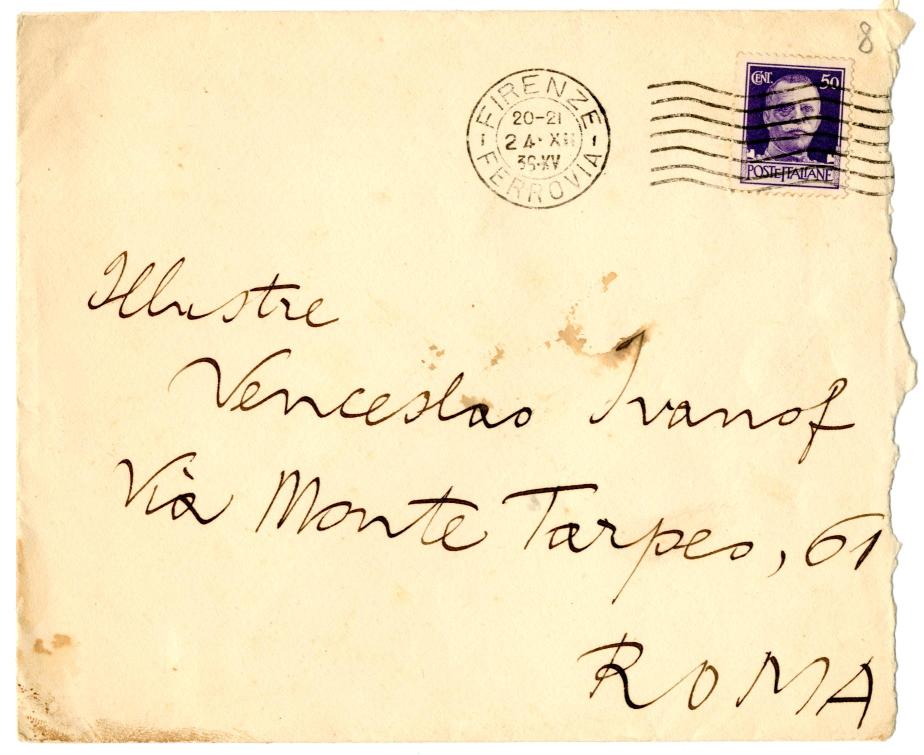 8
FIRENZE
20-21
24·XII
36·XV
FERROVIA
CENT. 50
POSTE ITALIANE
Illustre
Venceslao Ivanof
Via Monte Tarpeo, 61
ROMA